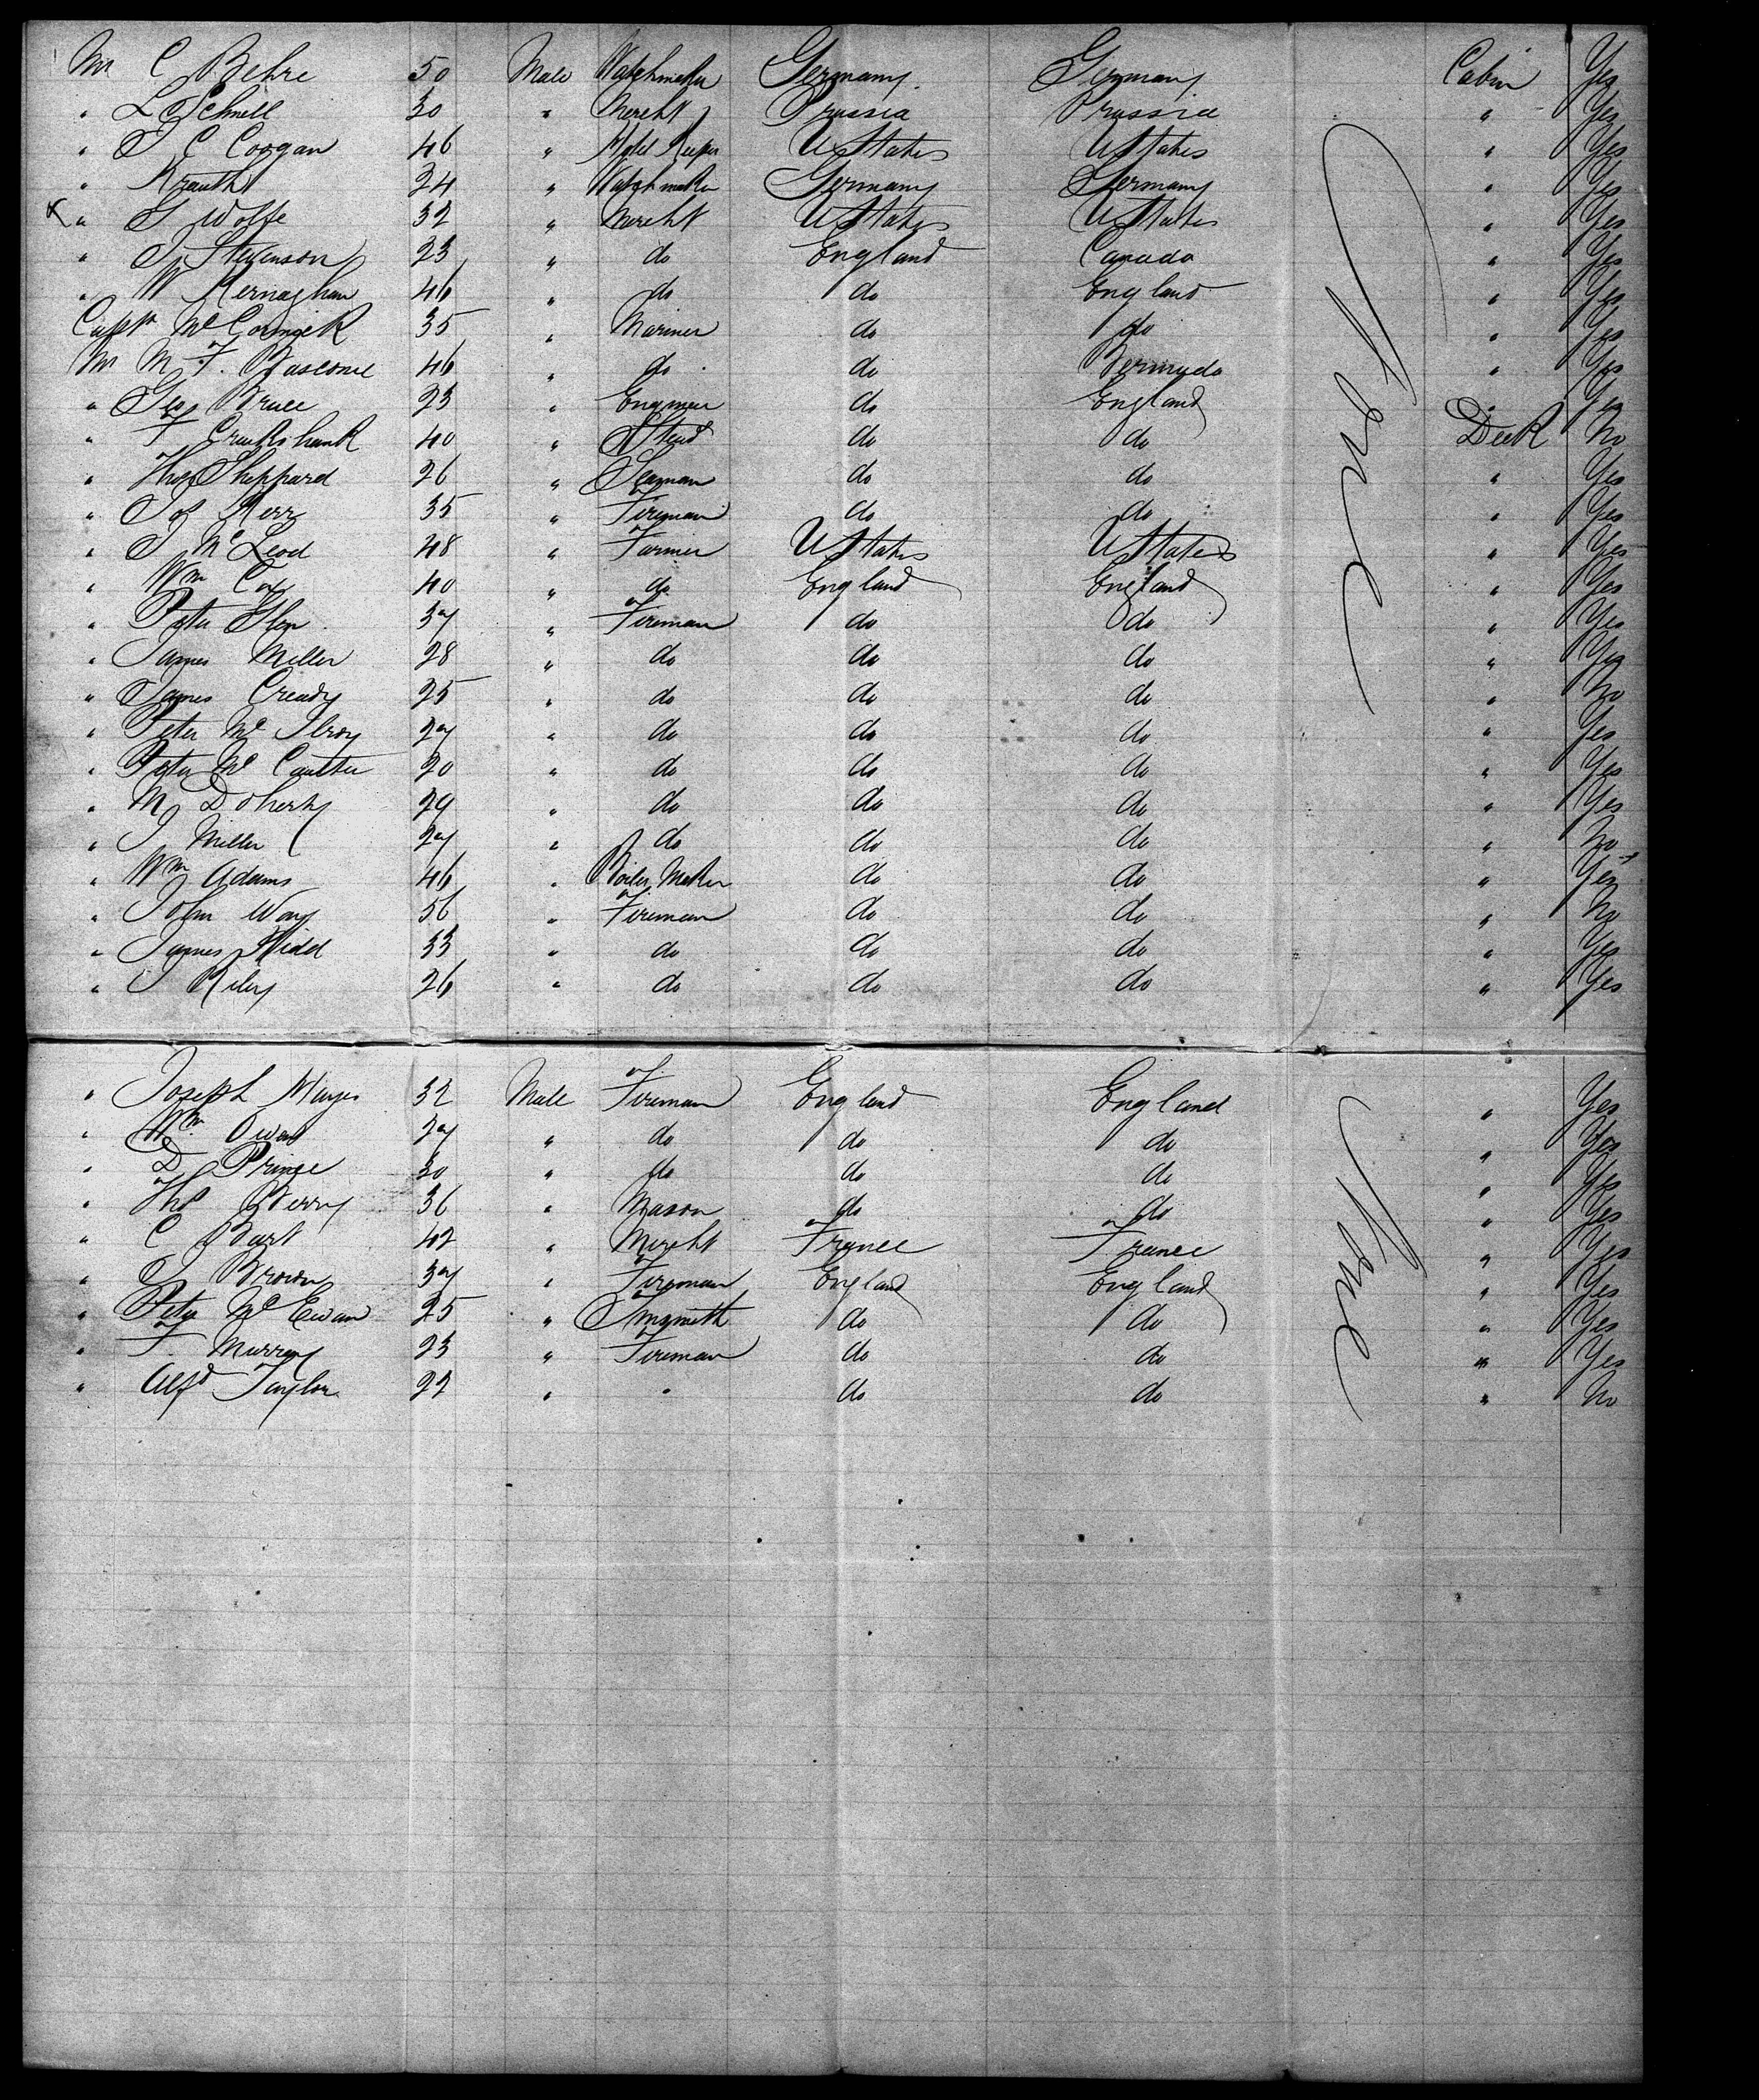 Mr C Behre 50 Male Watchmaker Germany Germany Cabin Yes
" L Schnell 30 " Mercht Prussia Prussia " Yes
" J C Coogan 46 " Hotel Keeper U States U States " Yes
" Krauth 24 " Watchmaker Germany Germany " Yes
x " S Wolfe 32 " Mercht U States U States " Yes
" J Stevenson 23 " do England Canada " Yes
" W Kernaghan 46 " do do England " Yes
Capt McCormick 35 " Mariner do do " Yes
Mr M F. Bascome 46 " do do Bermuda " Yes
" Geo Bruce 23 " Engineer do England " Yes
" F Cruikshank 40 " Stewd do do Deck No
" Thos Sheppard 26 " Seaman do do " Yes
" Jos Kerr 35 " Fireman do do " Yes
" J McLeod 48 " Farmer U States U States " Yes
" Wm Cox 40 " do England England " Yes
" Peter Glen 37 " Fireman do do " Yes
" James Miller 28 " do do do " Yes
" James Cready 25 " do do do " No
" Peter McIlroy 27 " do do do " Yes
" Peter McCoulter 20 " do do do " Yes
" M Doherty 29 " do do do " Yes
" J Miller 27 " do do do " No
" Wm Adams 46 " Boiler Maker do do " Yes
" John Way 56 " Fireman do do " No
" James Kidd 33 " do do do " Yes
" J Riley 26 " do do do " Yes
None
" Joseph Mayes 32 Male Fireman England England " Yes
" Wm Owen 27 " do do do " Yes
" D Prince 30 " do do do " Yes
" Thos Berry 36 " Mason do do " Yes
" C Bart 42 " Mercht France France " Yes
" J Brown 37 " Fireman England England " Yes
" Peter McEwan 25 " Tinsmith do do " Yes
" F. Murray 23 " Fireman do do " Yes
" Alfd Taylor 22 " " do do " No
None